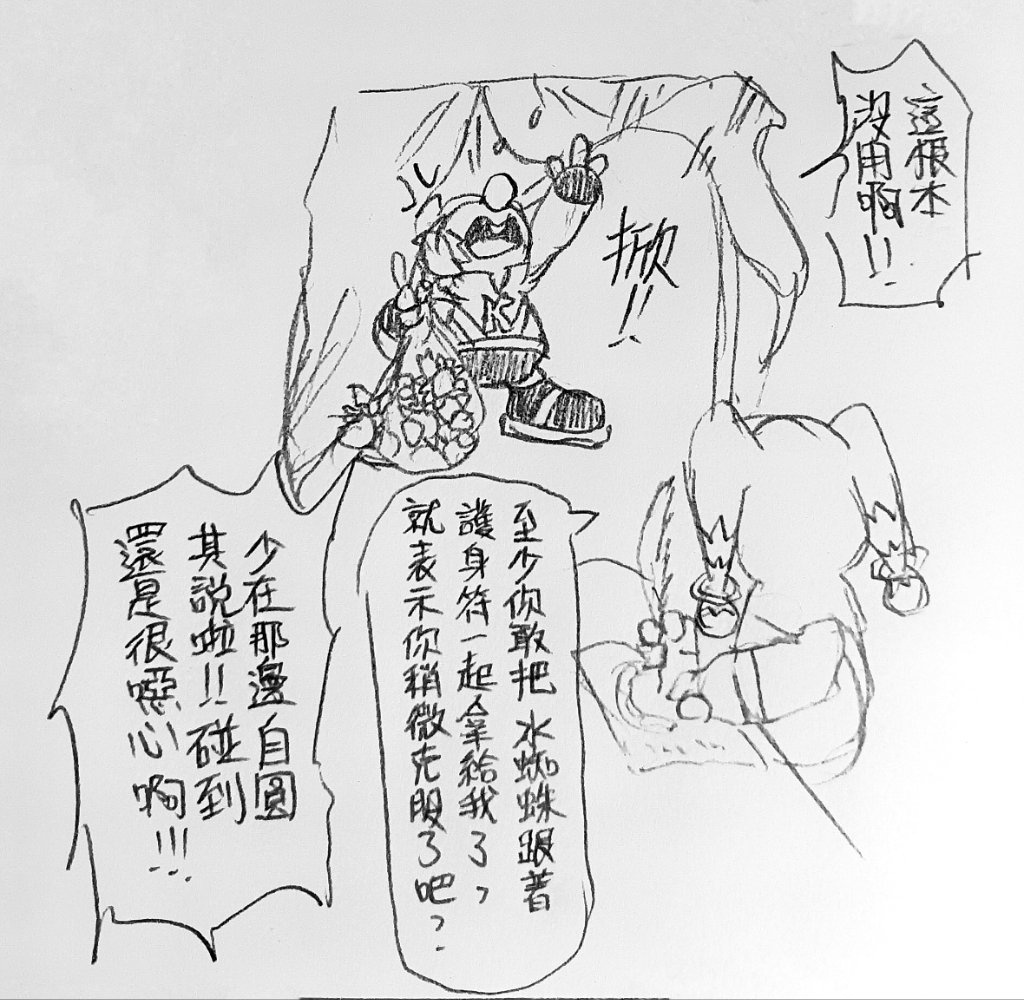 這根本
沒用啊!!
掀!!
K
至少你敢把水蜘蛛跟著
護身符一起拿給我了,
就表示你稍微克服了吧?
少在那邊自圓
其說啦!!碰到
還是很噁心啊!!!